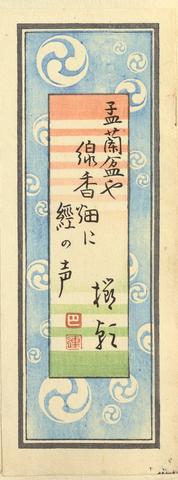 孟蘭盆や
線香畑に
經の声
巴
連